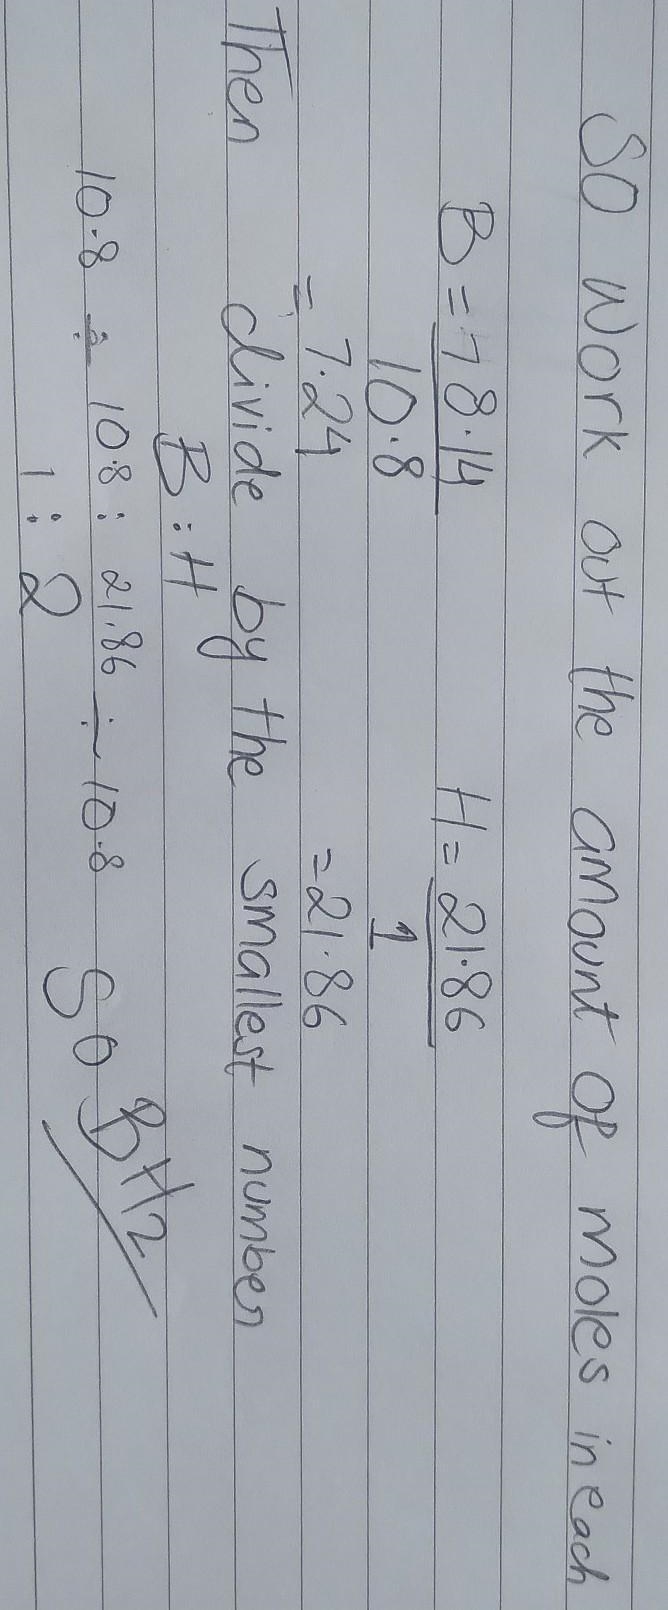 So Work out the amount of moles in each
B = 78.14 H = 21.86
10.8 1
= 7.24 = 21.86
Then divide by the smallest number
B : H
10.8 ÷ 10.8 : 21.86 ÷ 10.8 So BH2
1 : 2